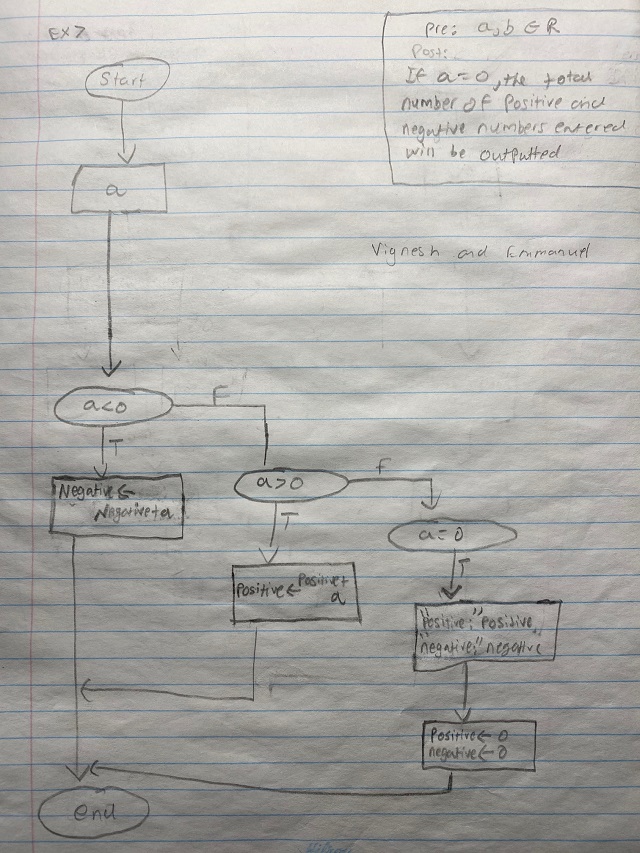 EX7
Pre: a,b ∈ R
Post:
If a=0, the total
number of Positive and
negative numbers entered
will be outputted
Start
a
Vignesh and Emmanuel
a<0
F
T
Negative←
Negative+a
a>0
F
T
Positive← Positive+
a
a=0
T
"Positive:" Positive
"negative:" negative
Positive←0
negative←0
end